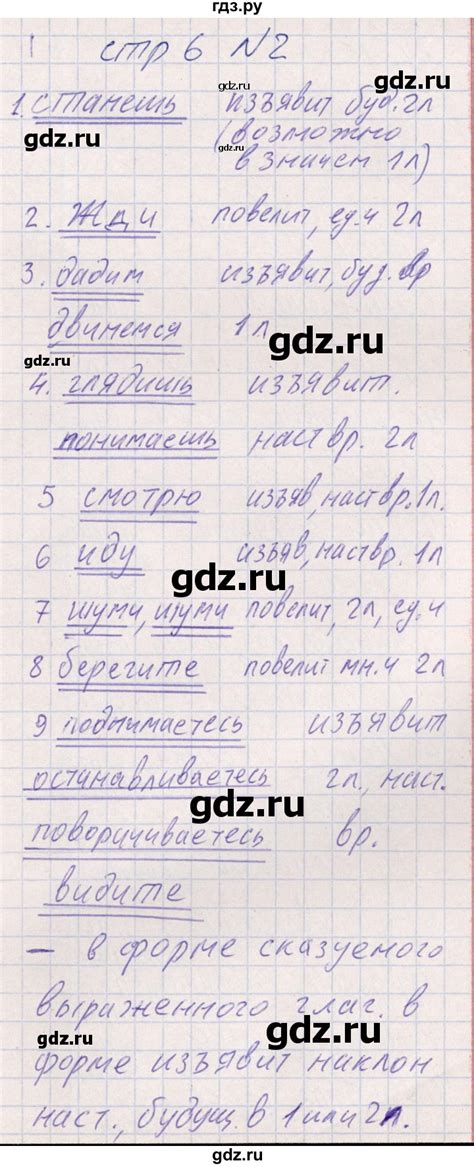 гдз.ру
стр 6 №2
1. станешь изъявит буд. 2л
(возможно
в значен 1л)
gdz.ru
gdz.ru
2. Жди повелит, ед.ч 2л
3. дадим изъявит, буд. вр
gdz.ru
двинемся 1л
gdz.ru
gdz.ru
4. глядишь изъявит.
понимаешь наст вр. 2л
gdz.ru
5 смотрю изъяв, наст вр. 1л.
6 иду изъяв, наст вр. 1л
gdz.ru
7 шуми, шуми повелит, 2л, ед.ч
8 берегите повелит мн.ч 2л
gdz.ru
9 поднимаетесь изъявит
останавливаетесь 2л, наст.
gdz.ru
поворачиваетесь вр.
видите
— в форме сказуемого
выраженного глаг. в
gdz.ru
gdz.ru
форме изъявит наклон
наст., будущ. в 1 или 2л.
gdz.ru